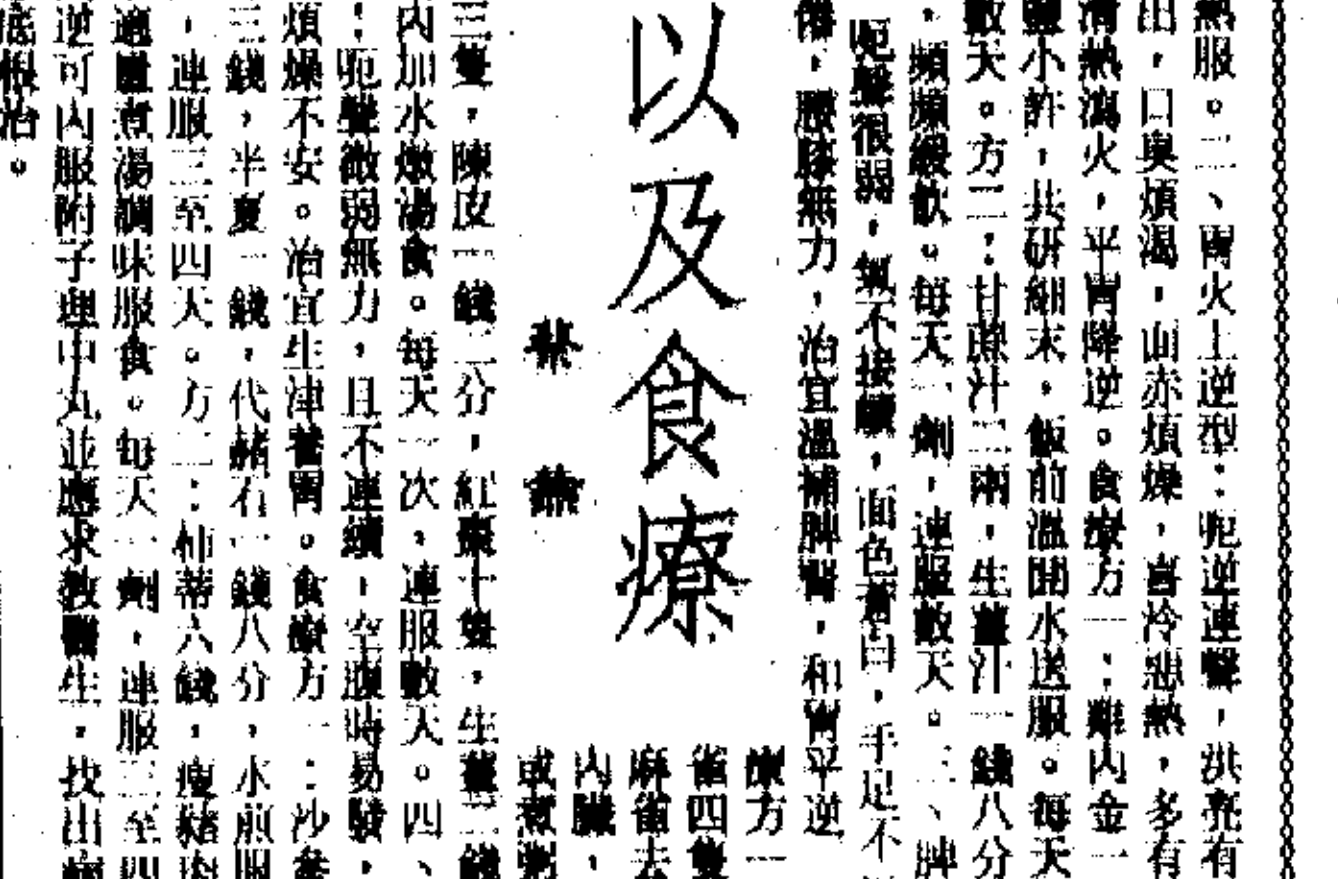 熱服。二、胃火上逆型：呃逆連聲，洪亮有
出，口臭煩渴，面赤煩燥，喜冷惡熱，多有
清熱瀉火，平胃降逆。食療方一：雞內金一
鹽小許，共研細末，飯前溫開水送服。每天
數天。方二：甘蔗汁二兩，生薑汁一錢八分
，頻頻緩飲。每天一劑，連服數天。三、脾
呃聲很弱，氣不接續，面色蒼白，手足不
倦，腰膝無力，治宜溫補脾腎，和胃平逆
以及食療
療方一
雀四隻
麻雀去
內臟，
或煮粥
三隻，陳皮一錢二分，紅棗十隻，生薑三錢
內加水燉湯食。每天一次，連服數天。四、
：呃聲微弱無力，且不連續，空腹時易發，
煩燥不安。治宜生津養胃。食療方一：沙參
三錢，半夏一錢，代赭石一錢八分，水煎服
，連服三至四天。方二：柿蒂六錢，瘦豬肉
適量煮湯調味服食。每天一劑，連服三至四
逆可內服附子理中丸並應求教醫生，找出病
底根治。